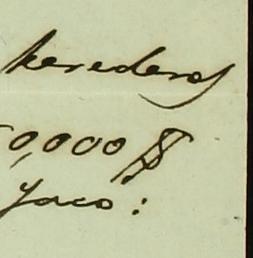 herederos
0,000 $
Yaco: